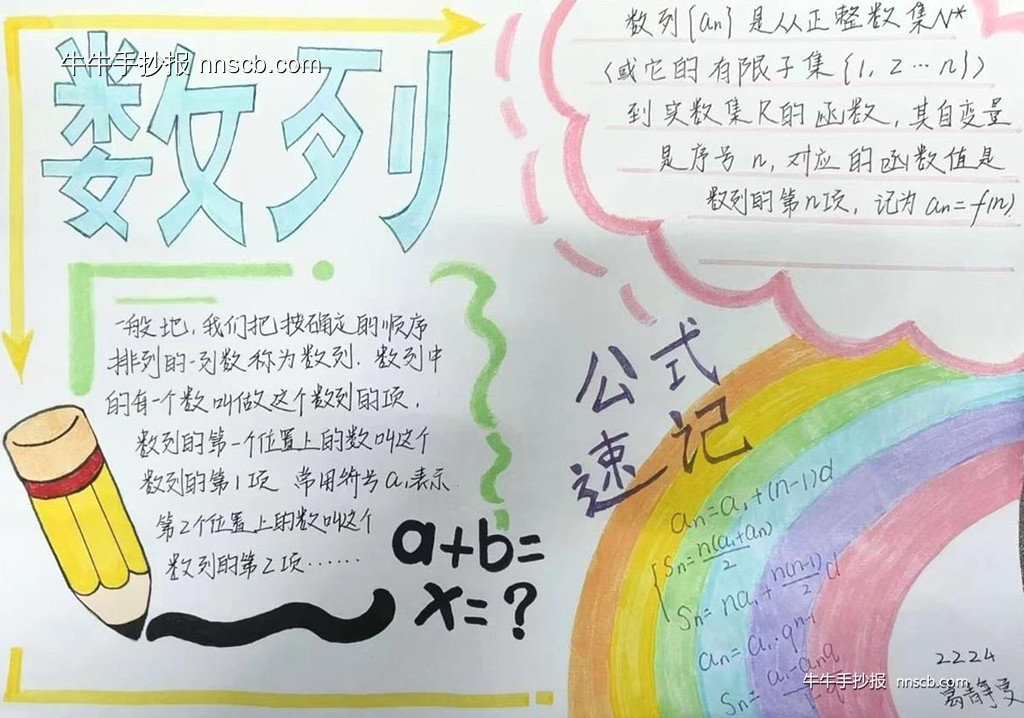 数列
牛牛手抄报 nnscb.com
数列{an}是从正整数集N*
(或它的有限子集{1, 2…n})
到实数集R的函数，其自变量
是序号n，对应的函数值是
数列的第n项，记为an=f(n)
一般地，我们把按确定的顺序
排列的一列数称为数列．数列中
的每一个数叫做这个数列的项．
数列的第一个位置上的数叫这个
数列的第1项 常用符号a₁表示
第2个位置上的数叫这个
数列的第2项……
a+b=
x=?
公式
速记
an=a₁+(n-1)d
Sn=n(a₁+an)/2
Sn=na₁+n(n-1)/2 d
an=a₁·qⁿ⁻¹
Sn=a₁-anq
2224
牛牛手抄报 nnscb.com